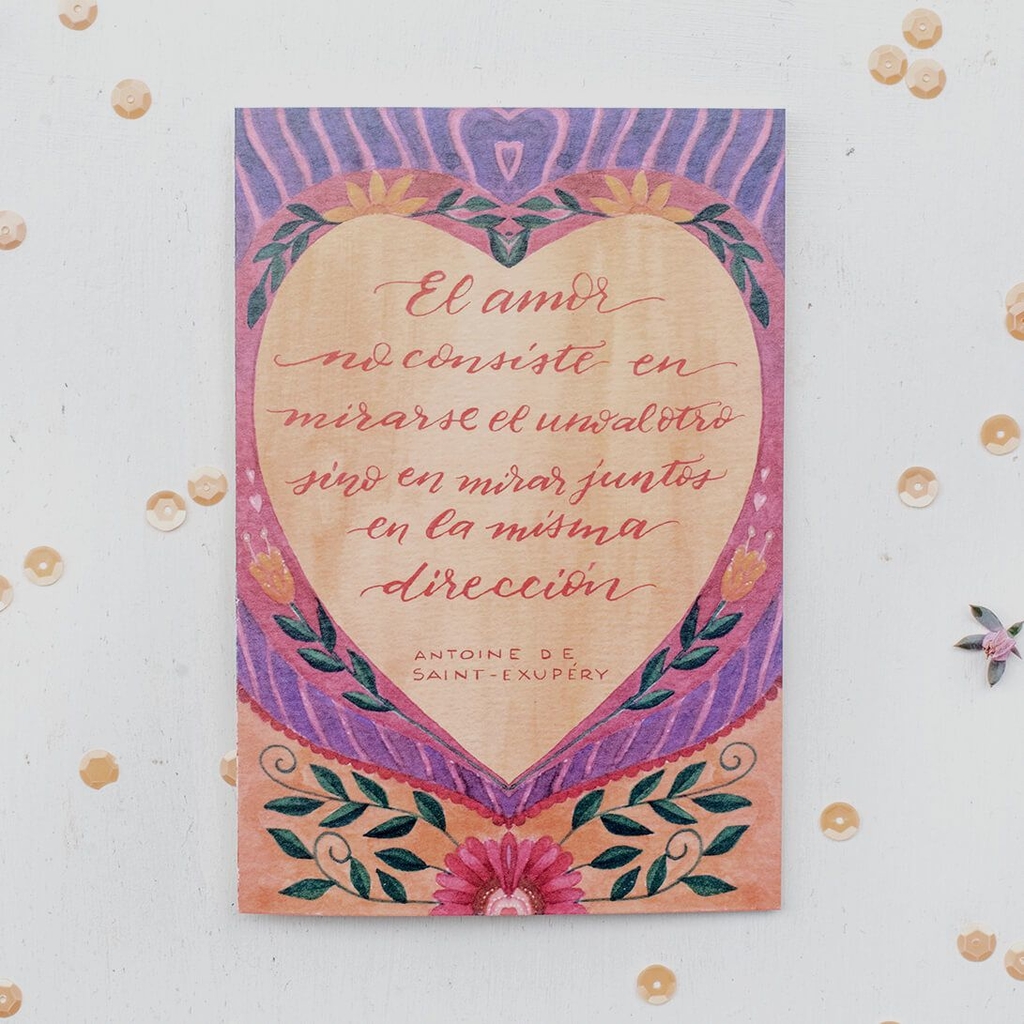 El amor
no consiste en
mirarse el uno al otro
sino en mirar juntos
en la misma
dirección
ANTOINE DE
SAINT-EXUPÉRY